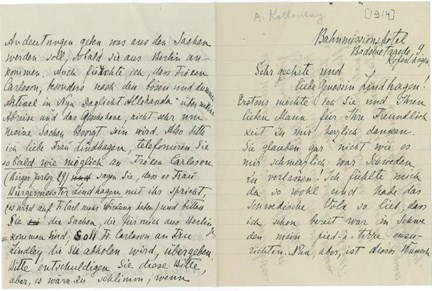 A. Kollontay [1914]
Bahnmissionshotel
9.
Kopenhagen
Sehr geehrte und
liebe Genossin Lindhagen!
Erstens möchte ich Sie und Ihren
lieben Mann für Ihre Freundlich
keit zu mir herzlich danken.
Sie glauben gar nicht wie es
mir schmerzlich war Schweden
zu verlassen! Ich fühlte mich
da so wohl und habe das
schwedische Volk so lieb, dass
ich schon bereit war in Schwe
den mein pied-à-terre einzu-
richten. Nun, aber, ist dieser
Andeutungen geben was aus den Sachen
werden soll, sobald sie aus Berlin an-
kommen. Auch fürchte ich, dass Fröken
Carlsson, besonders nach den bösen und
Artikel in Nya Dagligt Allehanda über meine
Abreise und das nicht mehr um
meine Sachen besorgt sein wird. Also bitte
ich liebe Frau Lindhagen, telefonieren Sie
so bald wie möglich an Fröken Carlsson
sagen Sie, dass es Frau
Bürgermeister Lindhagen mit ihr spricht,
und bitten
Sie die Sachen, die für mich aus Berlin
kommen sind, soll Fr. Carlsson an Frau
Lindley die sie abholen wird, übergeben.
Bitte entschuldigen Sie diese Bitte,
aber, es wäre zu schlimm, wenn